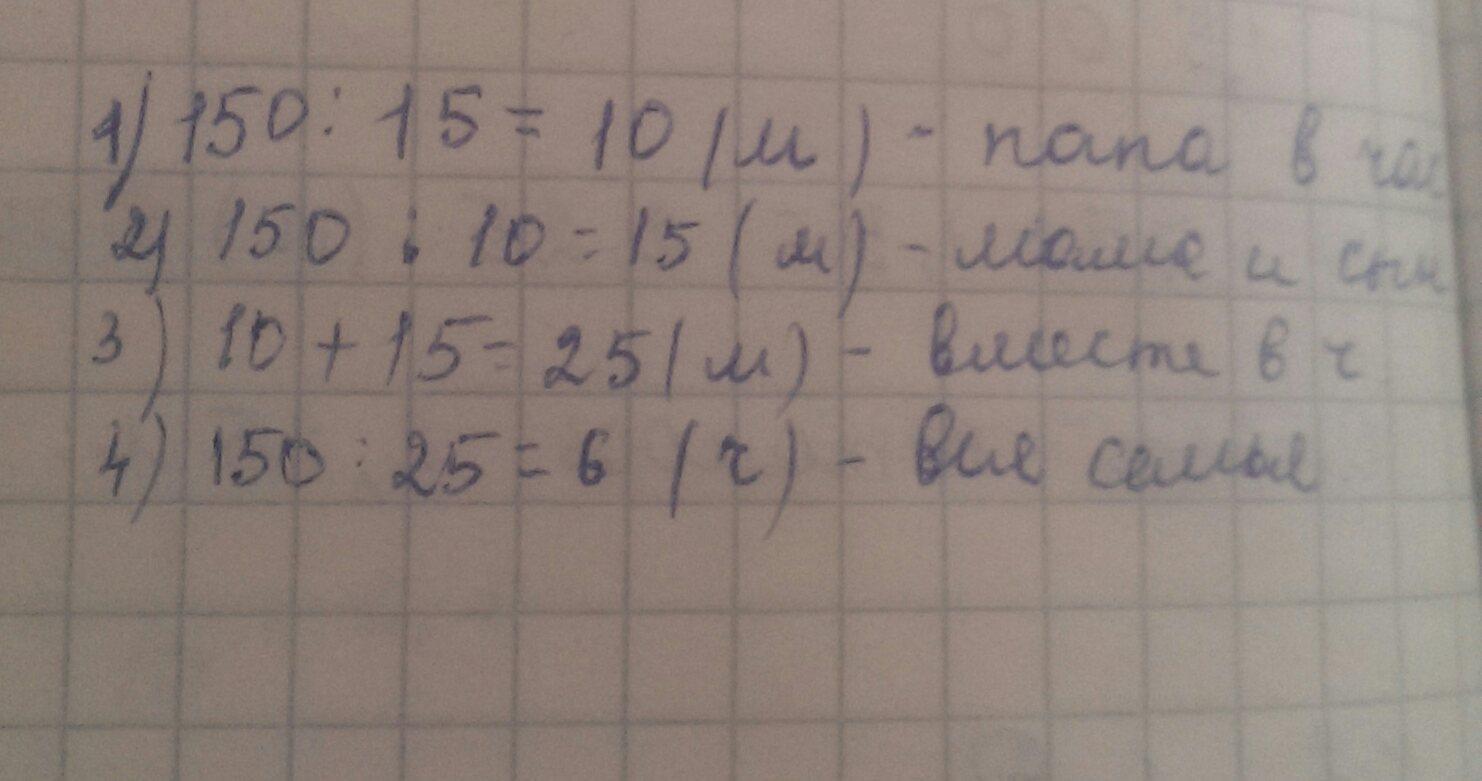 1) 150 : 15 = 10 (м) - папа в час
2) 150 : 10 = 15 (м) - мама и сын
3) 10 + 15 = 25 (м) - вместе в ч
4) 150 : 25 = 6 (ч) - вся семья